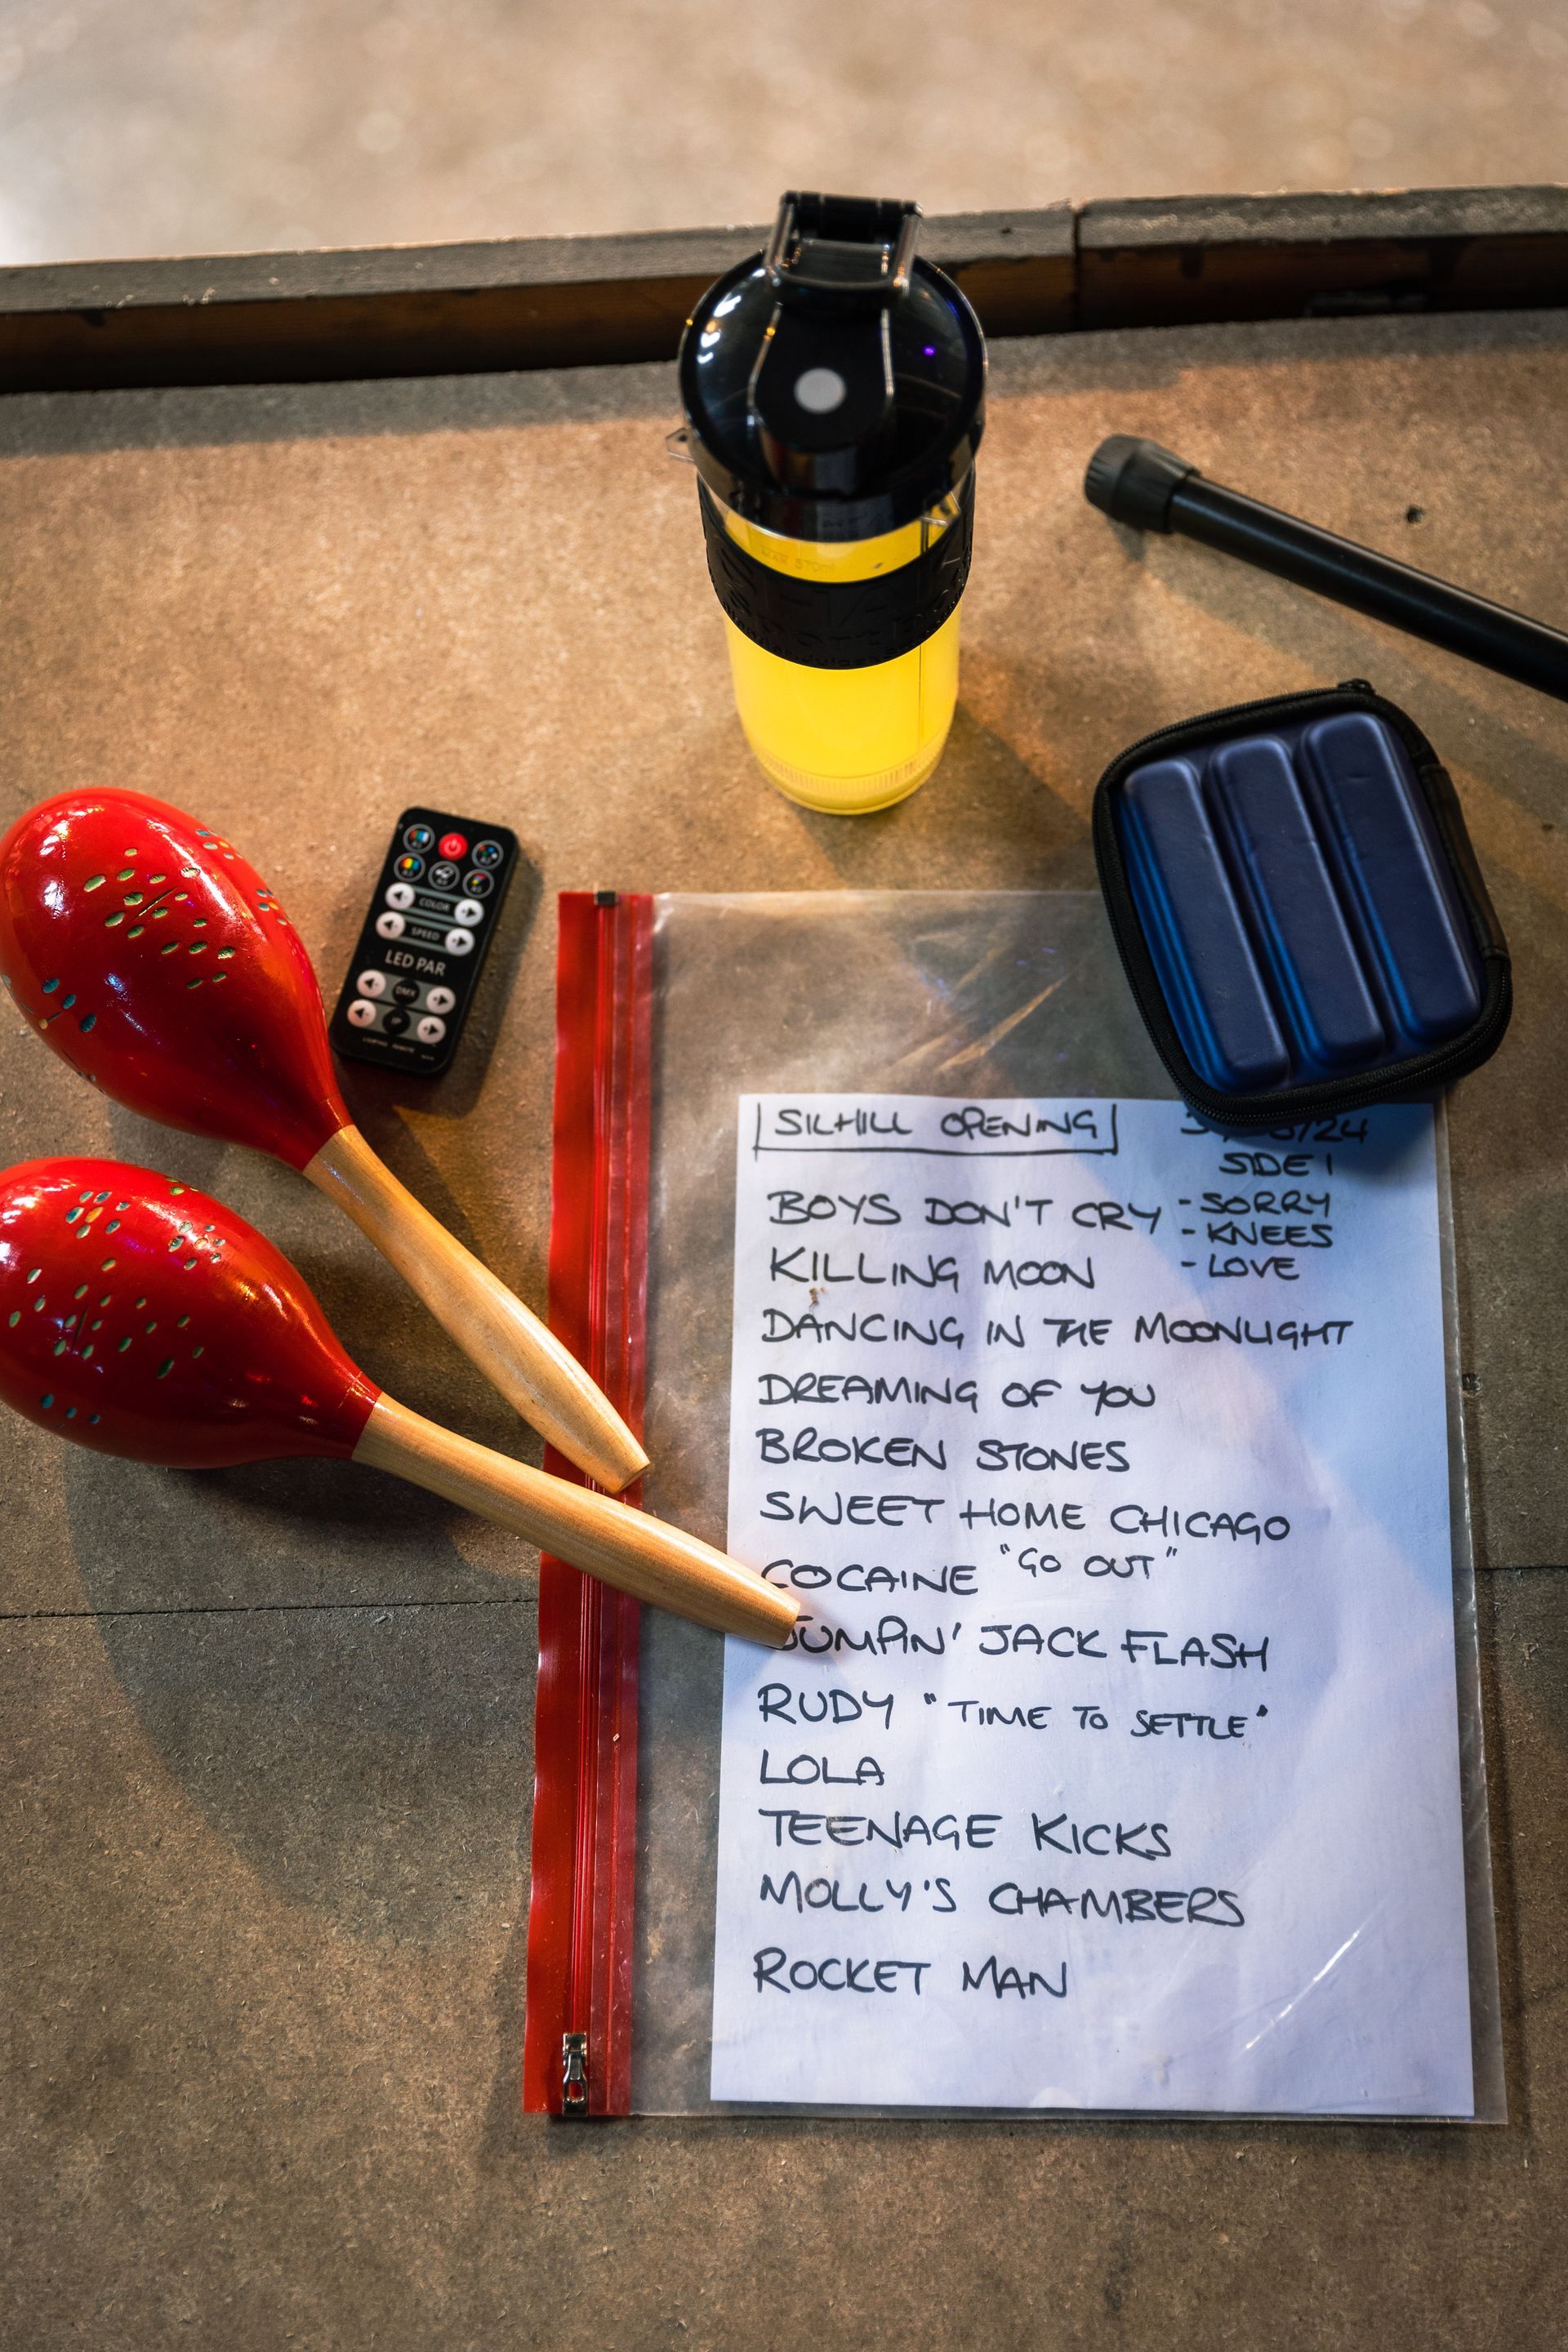 COLOR
SPEED
LED PAR
DMX
SILHILL OPENING
SIDE 1
BOYS DON'T CRY - SORRY
- KNEES
KILLING MOON - LOVE
DANCING IN THE MOONLIGHT
DREAMING OF YOU
BROKEN STONES
SWEET HOME CHICAGO
COCAINE "GO OUT"
JUMPIN' JACK FLASH
RUDY "TIME TO SETTLE"
LOLA
TEENAGE KICKS
MOLLY'S CHAMBERS
ROCKET MAN